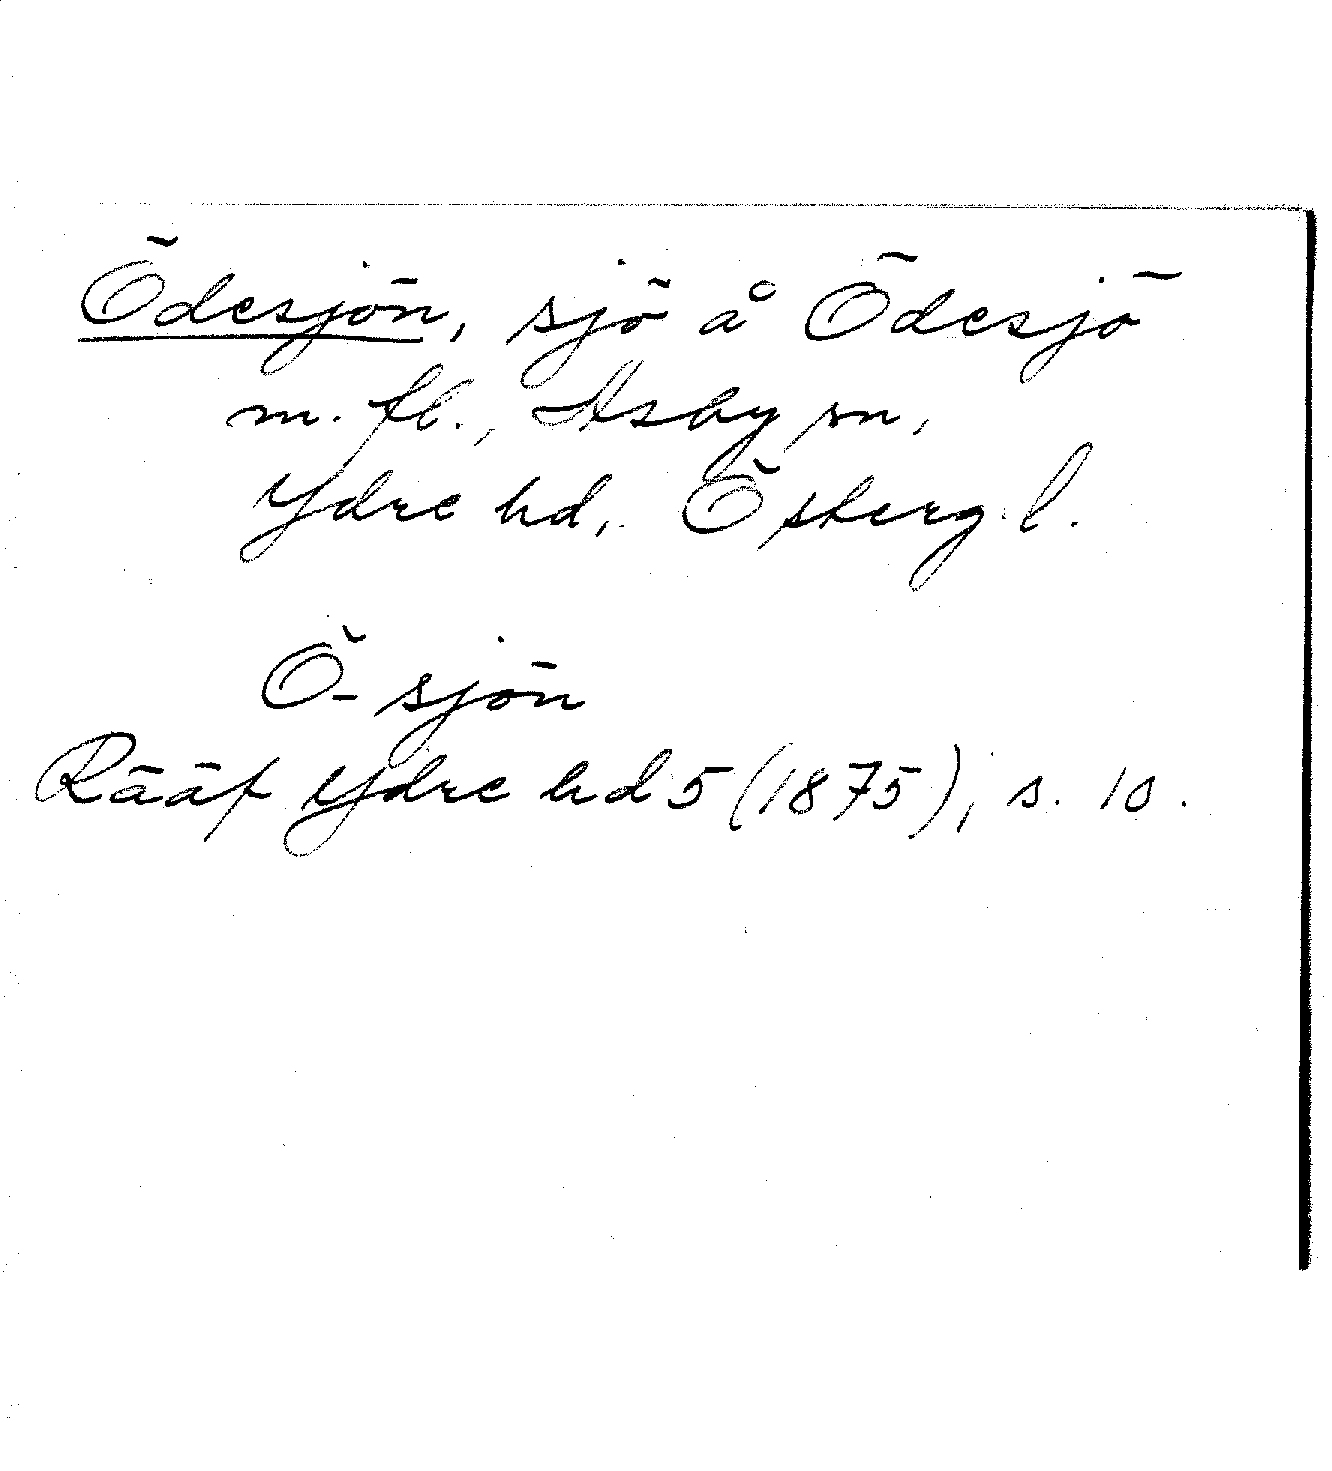 Ödesjön, sjö å Ödesjö
m. fl., Asby sn,
Ydre hd, Österg. l.
Ö-sjön
Rääf Ydre hd 5 (1875), s. 10.